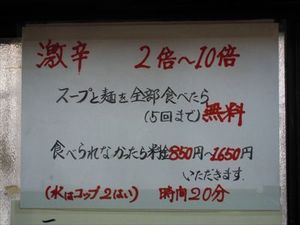 激辛 2倍～10倍
スープと麺を全部食べたら
(5回まで)無料
食べられなかったら料金850円～1650円
いただきます
(水はコップ2はい) 時間20分